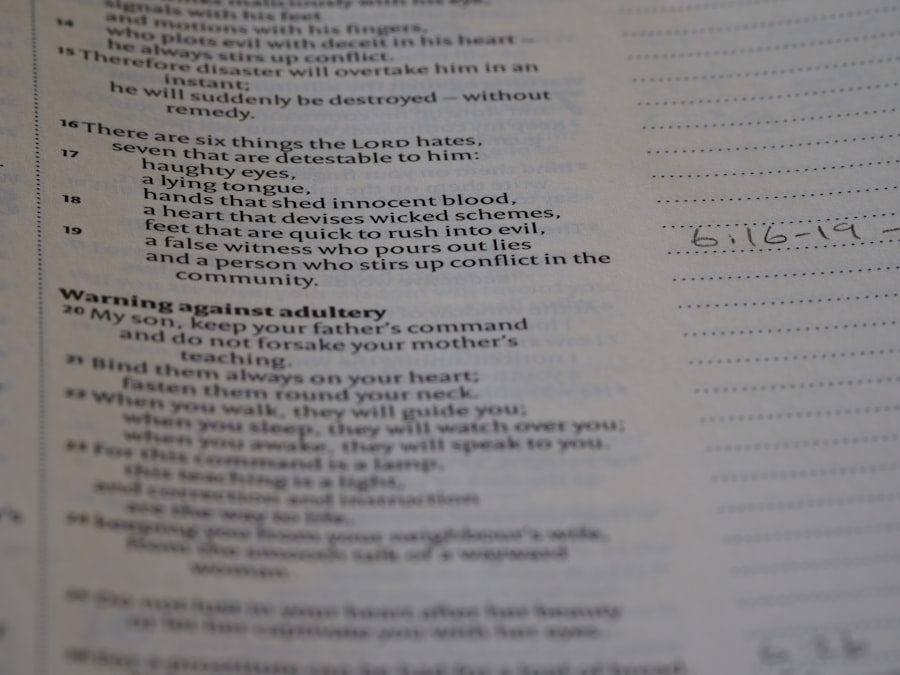 signals with his feet
and motions with his fingers,
14 who plots evil with deceit in his heart –
he always stirs up conflict.
15 Therefore disaster will overtake him in an
instant;
he will suddenly be destroyed – without
remedy.
16 There are six things the LORD hates,
seven that are detestable to him:
17 haughty eyes,
a lying tongue,
hands that shed innocent blood,
18 a heart that devises wicked schemes,
feet that are quick to rush into evil,
19 a false witness who pours out lies
and a person who stirs up conflict in the
community.
Warning against adultery
20 My son, keep your father's command
and do not forsake your mother's
teaching.
21 Bind them always on your heart;
fasten them round your neck.
22 When you walk, they will guide you;
when you sleep, they will watch over you;
when you awake, they will speak to you.
23 For this command is a lamp,
this teaching is a light,
and correction and instruction
are the way to life,
keeping you from your neighbour's wife,
from the smooth talk of a wayward
woman.
6:16-19 -